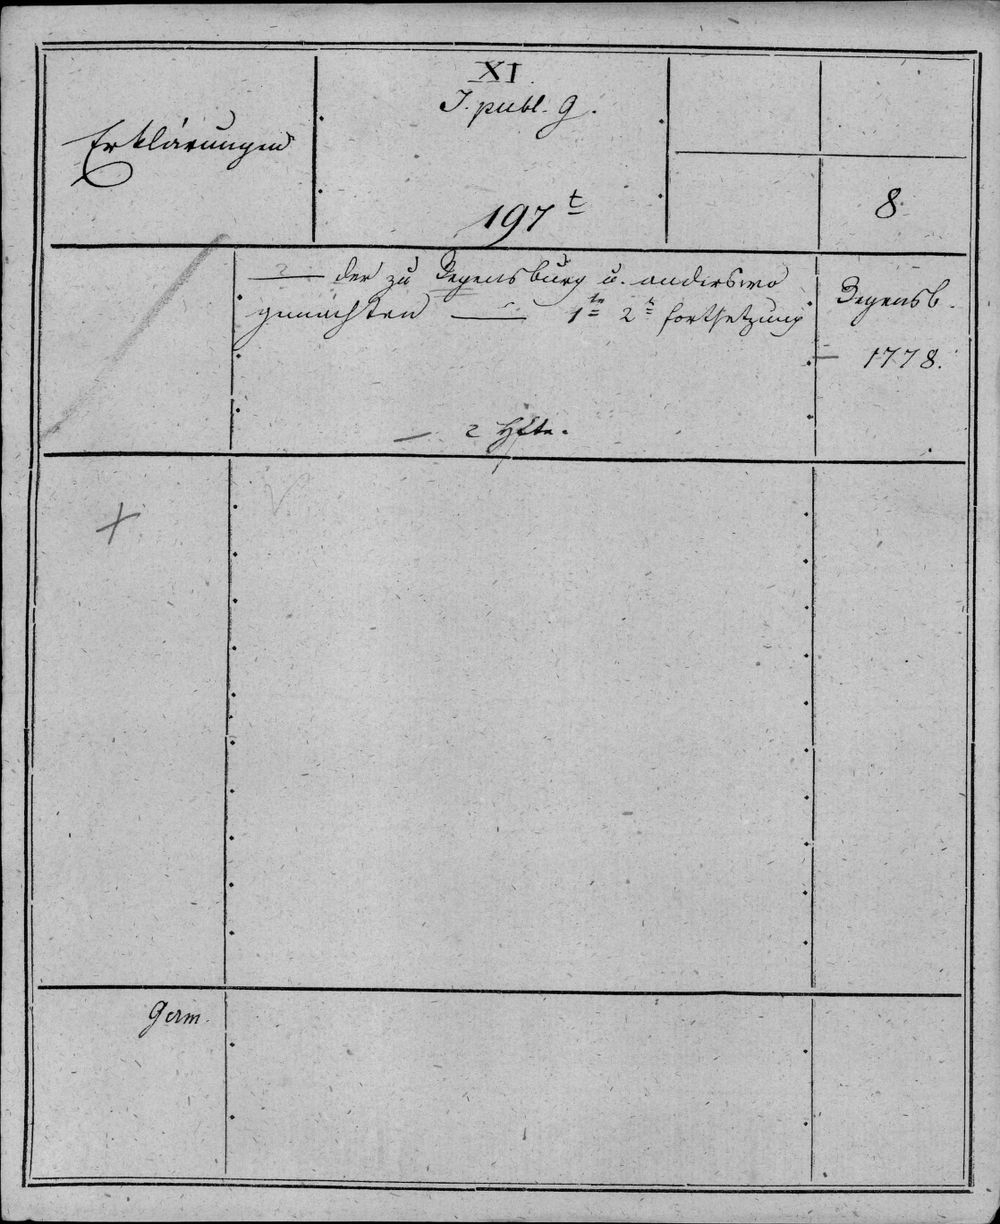 Erklärungen
XI.
J. publ. G.
197 t
8.
der zu Regensburg u. anderswo
gemachten — 1te 2te Fortsetzung
Regensb.
— 1778.
— 2 Hfte.
Germ.